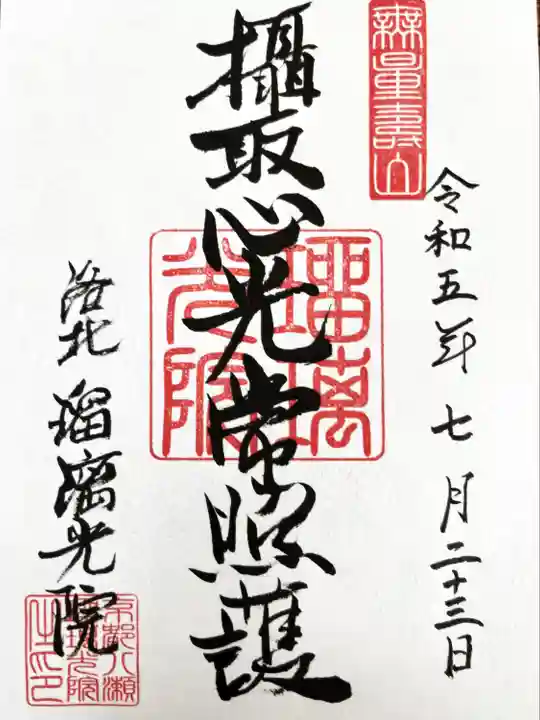 無量壽山
令和五年七月二十三日
攝取心光常照護
瑠璃光院
洛北 瑠璃光院
京都八瀬
瑠璃光院
之印